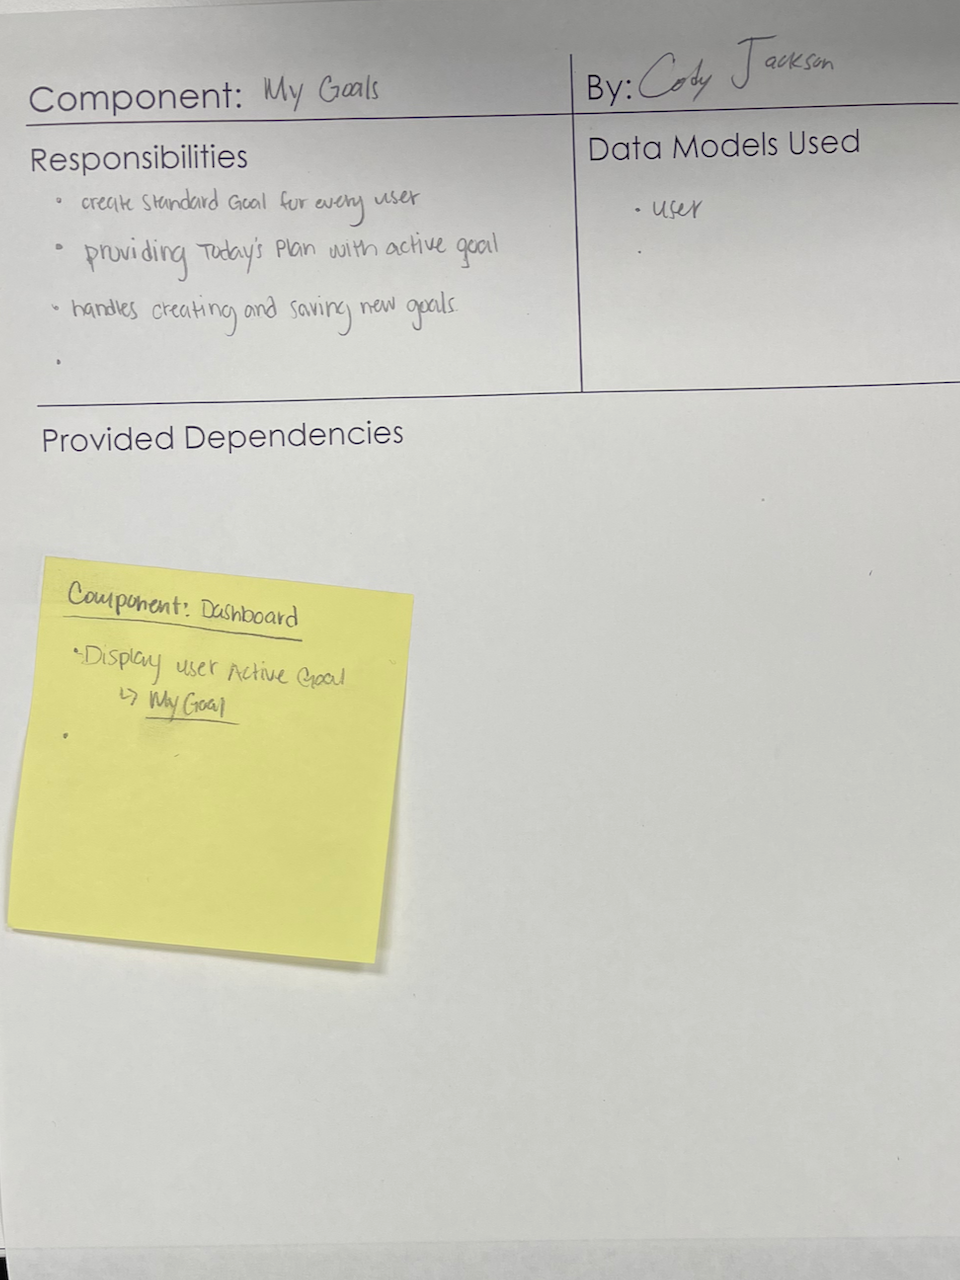 Component: My Goals
By: Cody Jackson
Responsibilities
• create Standard Goal for every user
• providing Today's Plan with active goal
• handles creating and saving new goals.
•
Data Models Used
• user
•
Provided Dependencies
Component: Dashboard
• Display user Active Goal
↳ My Goal
•